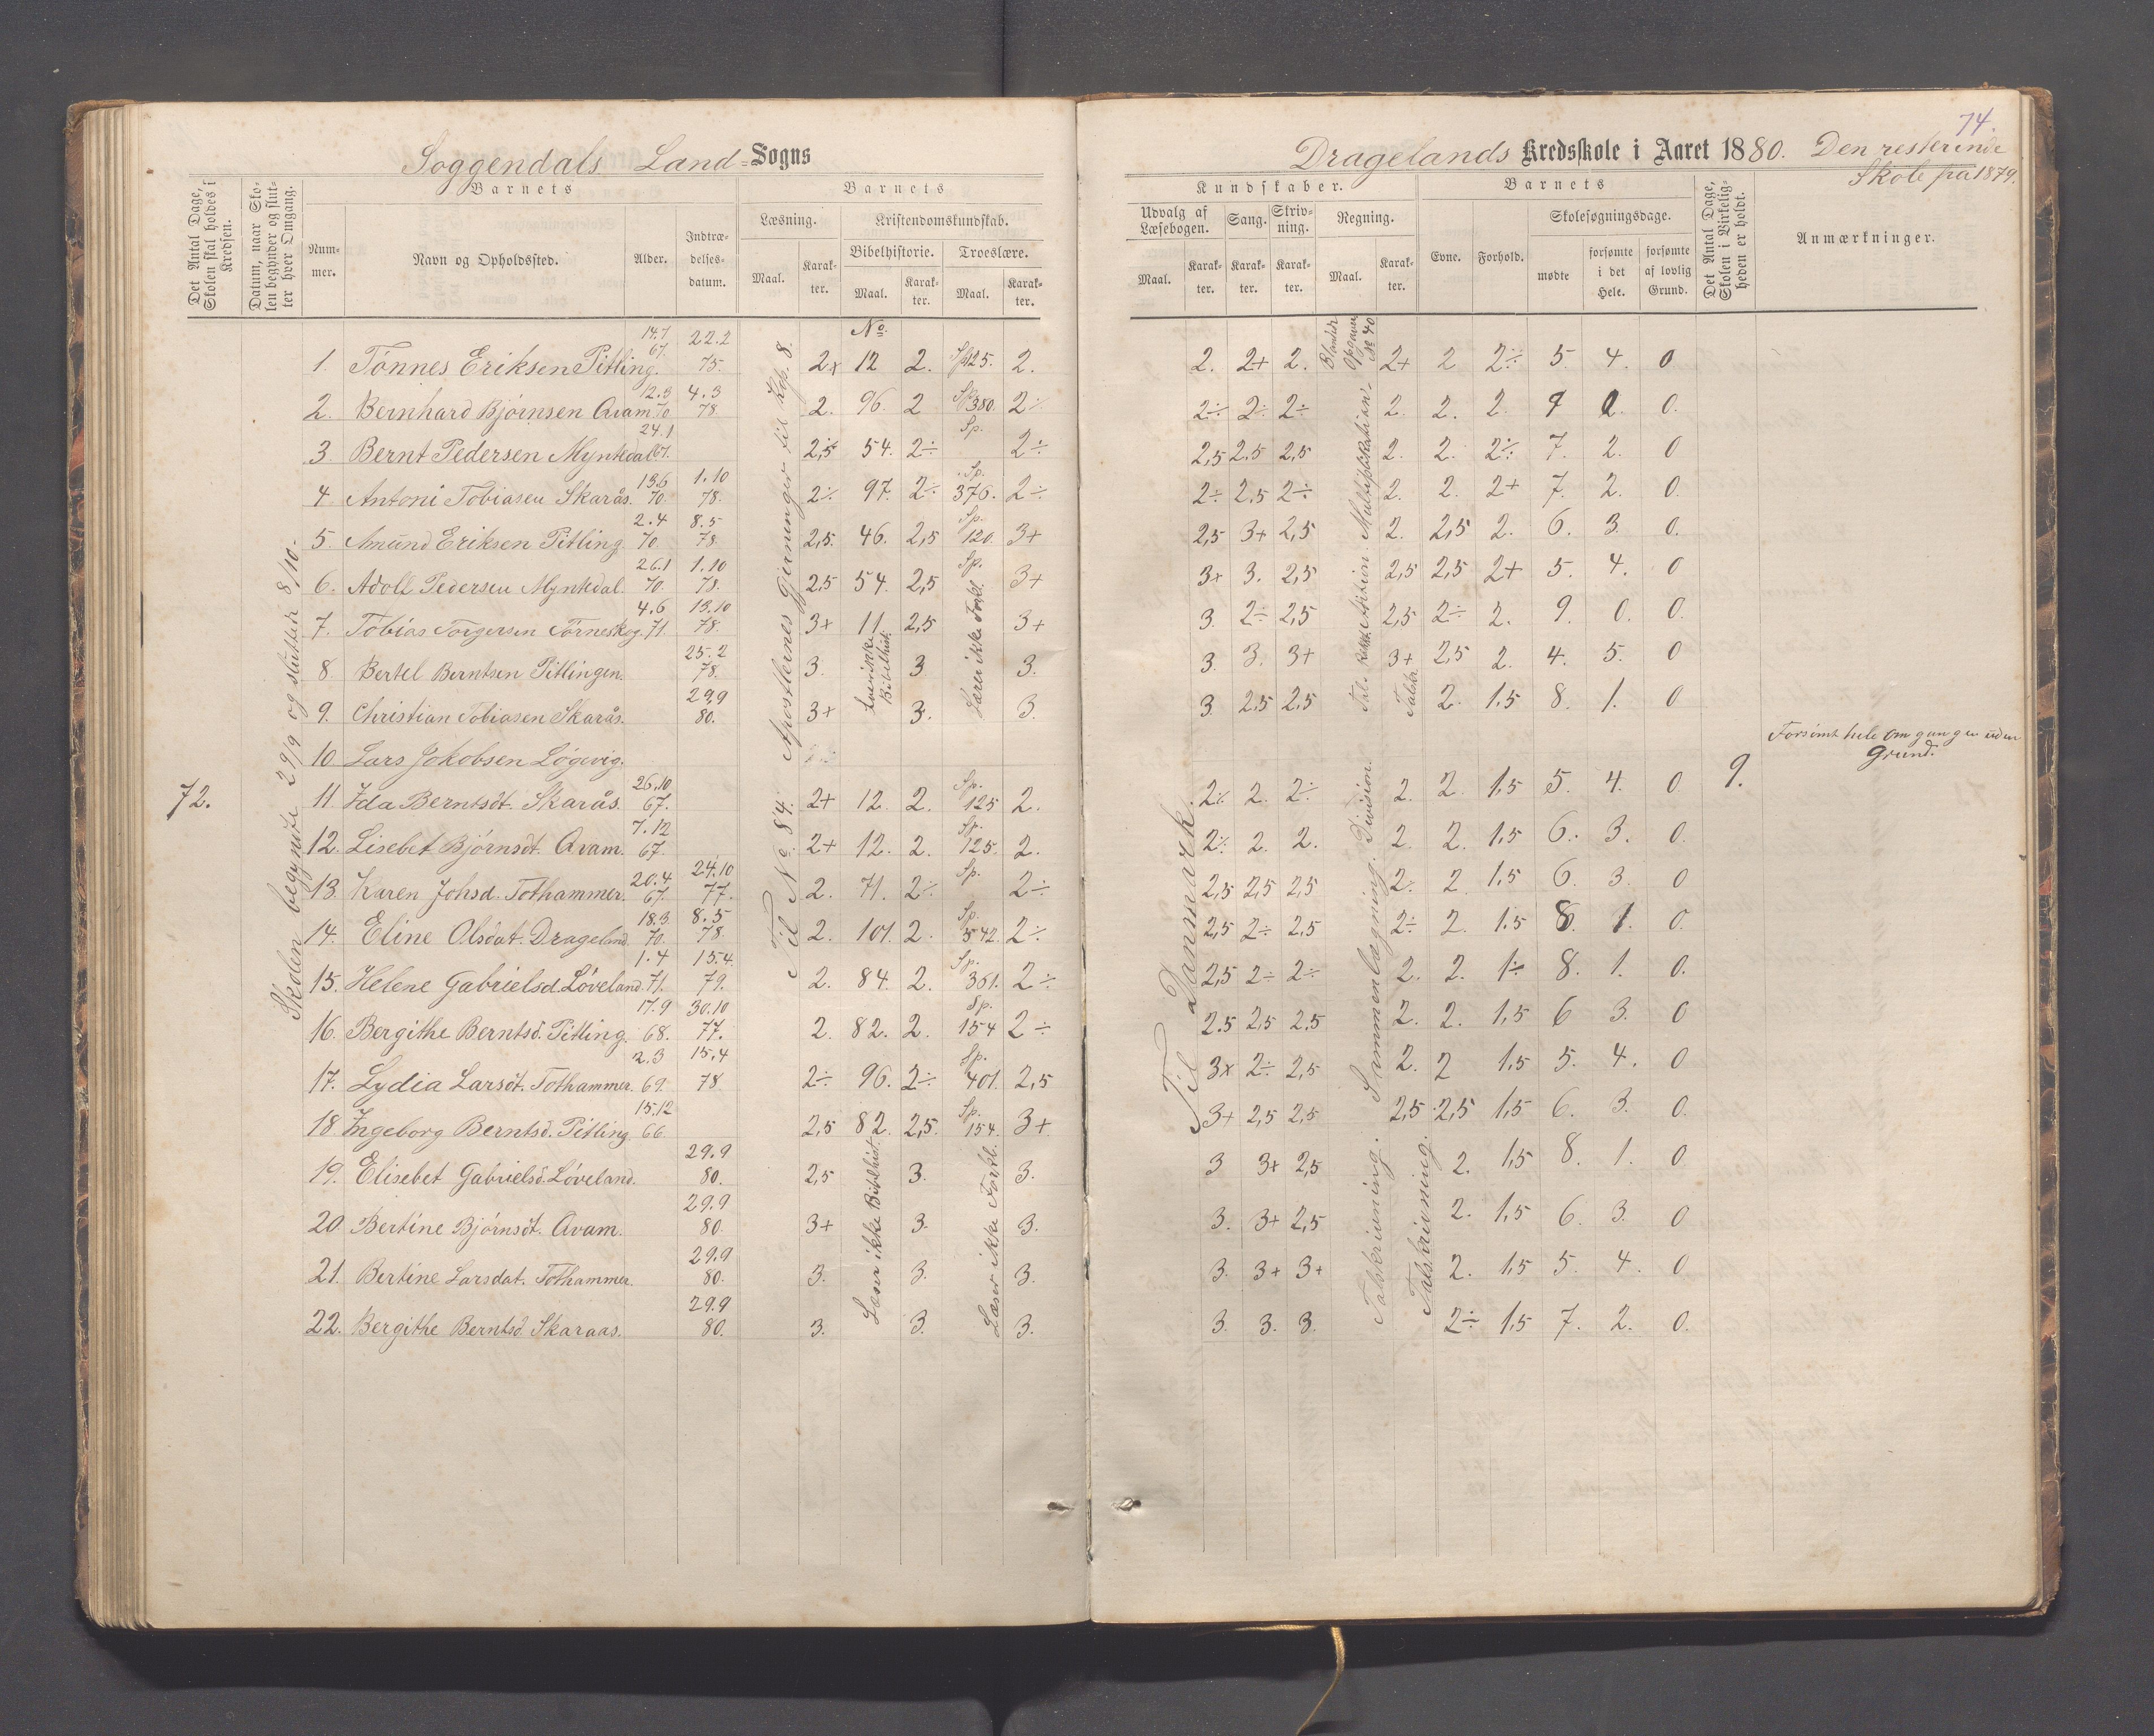 74.
Soggendals Land=Sogns
Dragelands Kredsskole i Aaret 1880. Den resterende
Skole på 1879.
Det Antal Dage, Skolen skal holdes i Kredsen.
Datum, naar Skolen begynder og slutter hver Omgang.
Barnets
Nummer.
Navn og Opholdssted.
Alder.
Indtrædelsesdatum.
Barnets
Læsning.
Maal.
Karakter.
Kristendomskundskab.
Bibelhistorie.
Maal.
Karakter.
Troeslære.
Maal.
Karakter.
Kundskaber.
Udvalg af Læsebogen.
Maal.
Karakter.
Sang.
Karakter.
Skrivning.
Karakter.
Regning.
Maal.
Karakter.
Barnets
Evne.
Forhold.
Skolesøgningsdage.
mødte
forsømte i det Hele.
forsømte af lovlig Grund.
Det Antal Dage, Skolen i Virkeligheden er holdt.
Anmærkninger.
72.
Skolen begynte 29/9 og sluttede 8/10.
Til No. 84. Apostlernes gjerninger til Kap. 8.
No.
Til Danmark.
1. Tönnes Eriksen Pitling. 14.7 67. 22.2 75. 2x 12 2. Sp 125. 2. 2. 2+ 2. 2+ 2 2÷ 5. 4. 0
2. Bernhard Bjørnsen Avam 12.3 70 4.3 78 2. 96. 2 Sp. 380. 2÷ 2÷ 2÷ 2÷ 2. 2. 2. 9 0. 0.
3. Bernt Pedersen Myntedal 24.1 67. 2,5 54. 2÷ Sp. 2÷ 2,5 2,5 2,5 2. 2. 2÷ 7. 2. 0
4 Antoni Tobiasen Skarås. 13.6 70. 1.10 78. 2÷ 97. 2÷ Sp. 376. 2÷ 2÷ 2,5 2÷ 2. 2. 2+ 7. 2. 0.
5. Amund Eriksen Pitling 2.4 70. 8.5 78. 2,5. 46. 2,5 Sp. 120. 3+ 2,5 3+ 2,5 2. 2,5 2. 6. 3. 0.
6. Adolf Pedersen Myntedal. 26.1 70. 1.10 78. 2,5 54. 2,5 Sp. 3+ 3+ 3. 2,5 2,5 2,5 2+ 5. 4. 0
7. Tobias Torgersen Törneskog. 4.6 71. 13.10 78. 3+ 11. 2,5 3+ 3. 2÷ 2,5 2,5 2÷ 2. 9. 0. 0.
8. Bertel Berntsen Pitlingen. 25.2 78. 3. 3 3. 3. 3. 3+ 3+ 2,5 2. 4. 5. 0
9. Christian Tobiasen Skarås. 29.9 80. 3+ 3. 3. 3. 2,5 2,5 2. 1.5 8. 1. 0
Læser ikke Bibelhist.
Læser ikke Forkl.
10. Lars Jokobsen Lögevig. Forsömt hele omgangen uden Grund.
11. Ida Berntsdt. Skarås. 26.10 67. 2+ 12. 2. Sp. 125 2. 2÷ 2. 2÷ 2. 2. 1.5 5. 4. 0 9.
12. Lisebet Bjørnsdt. Avam. 7.12 67. 2+ 12. 2. Sp. 125. 2. 2÷ 2. 2. 2. 2. 1.5 6. 3. 0.
13. Karen Johsd. Tothammer. 20.4 67. 24.10 77. 2. 71. 2÷ Sp. 2÷ 2,5 2,5 2,5 2÷ 2. 1.5 6. 3. 0
14. Eline Olsdat. Drageland. 18.3 70. 8.5 78 2. 101. 2. Sp. 342. 2÷ 2,5 2÷ 2,5 2÷ 2. 1.5 8. 1. 0.
15. Helene Gabrielsd. Löveland. 1.4 71. 15.4 79. 2. 84. 2. Sp. 361. 2÷ 2,5 2÷ 2÷ 2. 2. 1÷ 8. 1. 0.
16. Bergithe Berntsd. Pitling. 17.9 68. 30.10 77. 2. 82. 2. Sp. 154 2÷ 2.5 2,5 2,5 2. 2. 1,5 6 3. 0
17. Lydia Larsdt. Tothammer. 2.3 69. 15.4 78 2÷ 96. 2÷ Sp. 401. 2,5 3x 2÷ 2,5 2. 2 1.5 5. 4. 0
18. Ingeborg Berntsd. Pitling. 15.12 66. 2,5 82. 2,5. Sp. 154. 3+ 3+ 2,5 2,5 2,5 2,5 1,5 6. 3. 0.
19. Elisebet Gabrielsd. Löveland. 29.9 80. 2,5 3. 3. 3 3+ 2,5 2. 1,5 8. 1. 0
20. Bertine Bjørnsdt. Avam. 29.9 80. 3+ 3. 3. 3. 3+ 2,5 2. 1,5 6. 3. 0
21. Bertine Larsdat. Tothammer. 29.9 80. 3. 3. 3. 3. 3+ 3+ 2. 1.5 5. 4. 0
22. Bergithe Berntsd. Skaraas. 29.9 80. 3. 3. 3. 3. 3. 3. 2÷ 1.5 7. 2. 0.
Læser ikke Bibelhist.
Læser ikke Forkl.
Multiplikation.
Sammenlægning. Division.
Talskrivning.
Talskrivning.